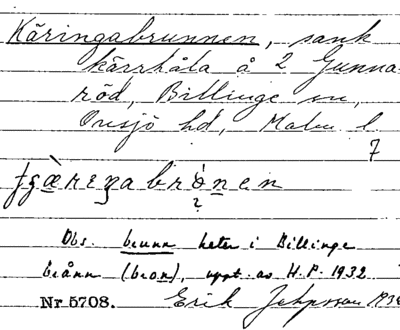 Käringabrunnen, sank
kärrhåla å 2 Gunna-
röd, Billinge sn,
Onsjö hd, Malm. l.
7
Obs. brunn heter i Billinge
brånn (bron), uppt. av H.P. 1932
Nr 5708. Erik Jeppsson 1936